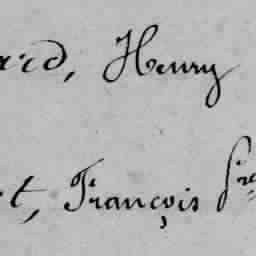 ard, Henry
t, François